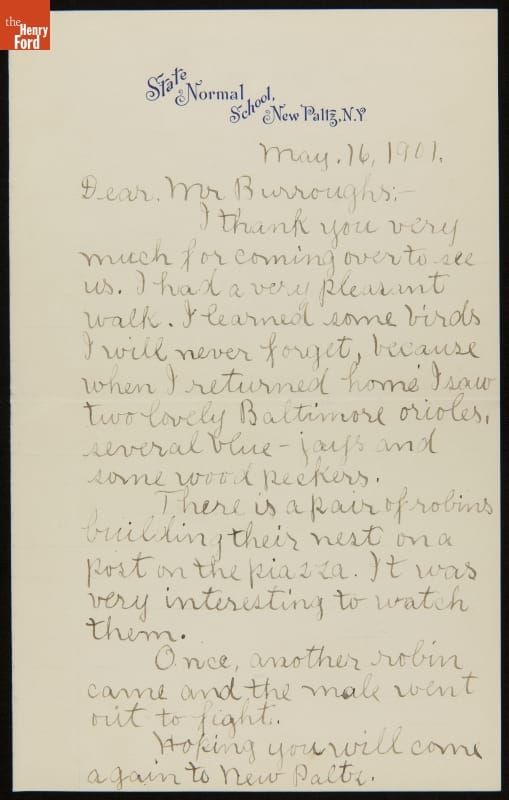 the
Henry
Ford
State
Normal
School,
New Paltz, N.Y.
May. 16, 1901.
Dear. Mr Burroughs:-
I thank you very
much for coming over to see
us. I had a very pleasant
walk. I learned some birds
I will never forget, because
when I returned home I saw
two lovely Baltimore orioles,
several blue-jays and
some wood peckers.
There is a pair of robins
building their nest on a
post on the piazza. It was
very interesting to watch
them.
Once, another robin
came and the male went
out to fight.
Hoping you will come
again to New Paltz.